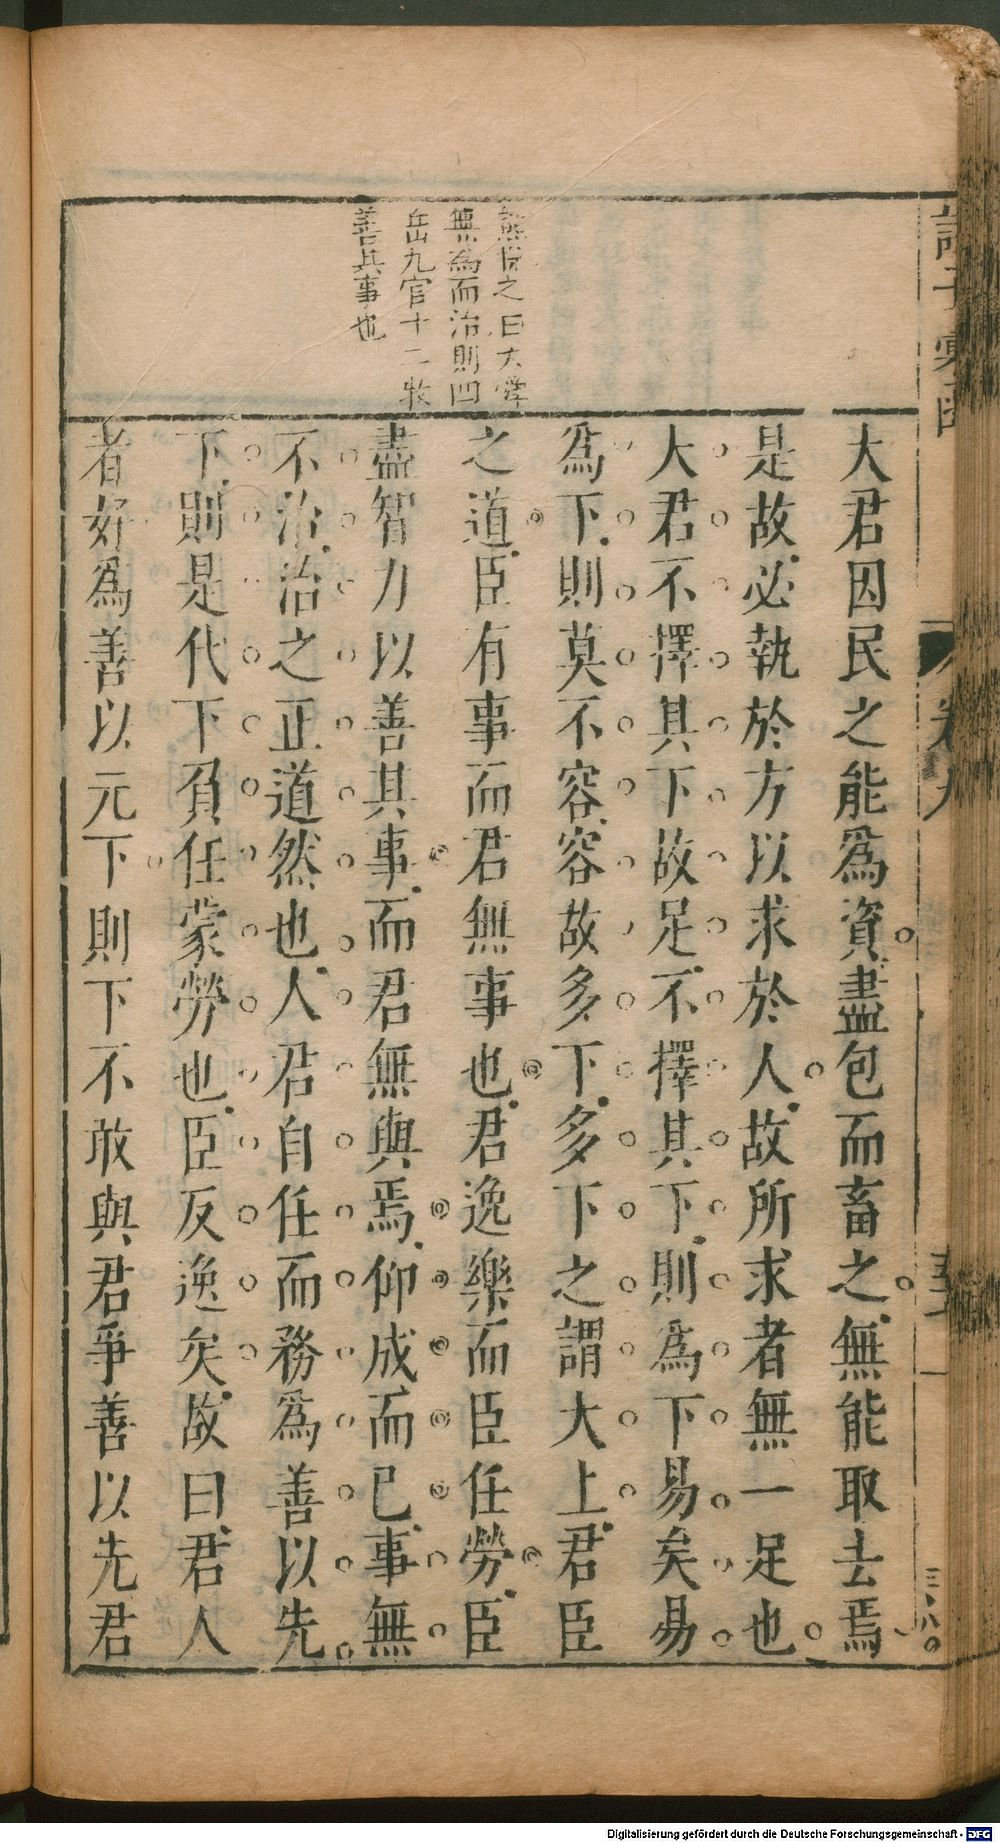 諸子彙函
卷九
大君因民之能爲資盡包而畜之無能取去焉
是故必執於方以求於人故所求者無一足也
大君不擇其下故足不擇其下則爲下易矣易
爲下則莫不容容故多下多下之謂大上君臣
之道臣有事而君無事也君逸樂而臣任勞臣
盡智力以善其事而君無與焉仰成而已事無
不治治之正道然也人君自任而務爲善以先
下則是代下負任蒙勞也臣反逸矣故曰君人
者好爲善以元下則下不敢與君爭善以先君
之曰大舜
無爲而治則四
岳九官十二牧
善其事也
Digitalisierung gefördert durch die Deutsche Forschungsgemeinschaft - DFG